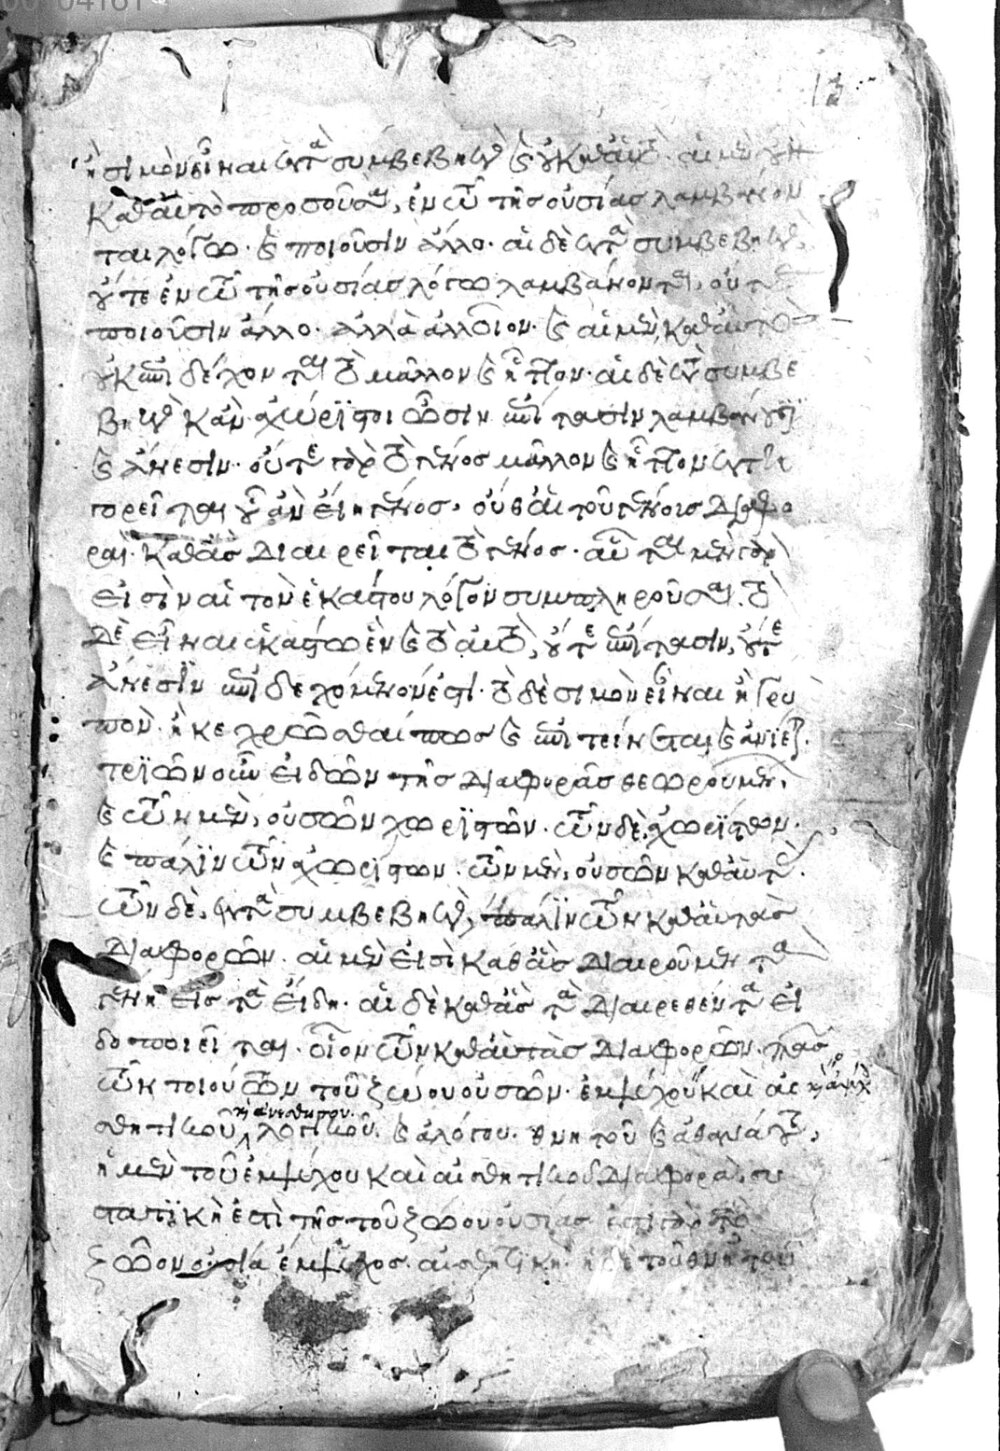 ἢ σιμὸν εἶναι κατὰ συμβεβηκὸς καὶ οὐ καθαὐτό. αἱ μὲν οὖν
καθαὑτὸ προσοῦσαι, ἐν τῶ τῆς οὐσίας λαμβάνον
ται λόγω. καὶ ποιοῦσιν ἄλλο. αἱ δὲ κατὰ συμβεβηκὸς,
οὔτε ἐν τῶ τῆς οὐσίας λόγω λαμβάνονται, οὔτε
ποιοῦσιν ἄλλο. ἀλλὰ ἀλλοῖον. καὶ αἱ μὲν καθαὑτὸ
οὐκ ἐπιδέχονται τὸ μᾶλλον καὶ ἧττον. αἱ δὲ κατὰ συμβε
βηκὸς κἂν ἀχώριστοι ὦσιν ἐπίτασιν λαμβάνουσι
καὶ ἄνεσιν. οὔτε γὰρ τὸ γένος μᾶλλον καὶ ἧττον κατη
γορεῖται οὗ ἂν εἴη γένος. οὔθ' αἱ τοῦ γένους διαφο
ραὶ. καθἃς διαιρεῖται τὸ γένος. αὗται μὲν γὰρ
εἰσὶν αἱ τὸν ἑκάστου λόγον συμπληροῦσαι. τὸ
δὲ εἶναι ἑκάστω ἓν καὶ τὸ αὐτὸ, οὔτε ἐπίτασιν, οὔτε
ἄνεσιν ἐπιδεχόμενόν ἐστι. τὸ δὲ σιμὸν εἶναι ἢ γρυ
πὸν. ἢ κεχρῶσθαί πως καὶ ἐπιτείνεται καὶ ἀνίεται.
τριῶν οὖν εἰδῶν τῆς διαφορᾶς θεωρουμένων
καὶ τῶν μὲν, οὐσῶν χωριστῶν. τῶν δὲ, ἀχωρίστων.
καὶ πάλιν τῶν ἀχωρίστων. τῶν μὲν, οὐσῶν καθαὑτὰς.
τῶν δὲ, κατὰ συμβεβηκὸς, πάλιν τῶν καθαὑτὰς
διαφορῶν. αἱ μὲν εἰσὶ καθἃς διαιρούμεθα τὰ
γένη εἰς τὰ εἴδη. αἱ δὲ καθἃς τὰ διαιρεθέντα εἰ
δοποιεῖται. οἷον τῶν καθαὑτὰς διαφορῶν πασῶν
τῶν τοιούτων τοῦ ζώου οὐσῶν. ἐμψύχου καὶ αἰ
σθητικοῦ, λογικοῦ. καὶ ἀλόγου. θνητοῦ καὶ ἀθανάτου,
ἡ μὲν τοῦ ἐμψύχου καὶ αἰσθητικοῦ διαφορὰ, συ
στατικὴ ἐστὶ τῆς τοῦ ζώου οὐσίας ἐστὶ γὰρ τὸ
ζῶον οὐσία ἔμψυχος αἰσθητικὴ. ἡ δὲ τοῦ θνητοῦ